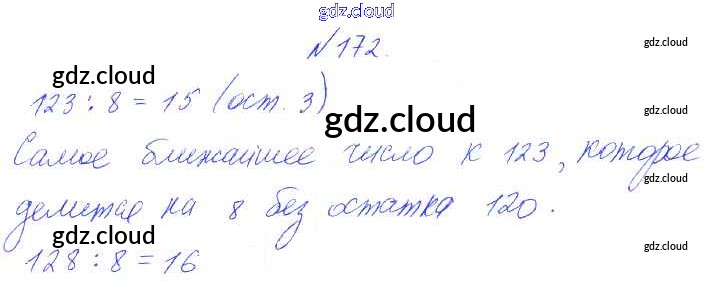 gdz.cloud
№172.
gdz.cloud
gdz.cloud
123 : 8 = 15 (ост. 3)
gdz.cloud
gdz.cloud
Самое ближайшее число к 123, которое
gdz.cloud
делится на 8 без остатка 120.
gdz.cloud
gdz.cloud
gdz.cloud
128 : 8 = 16